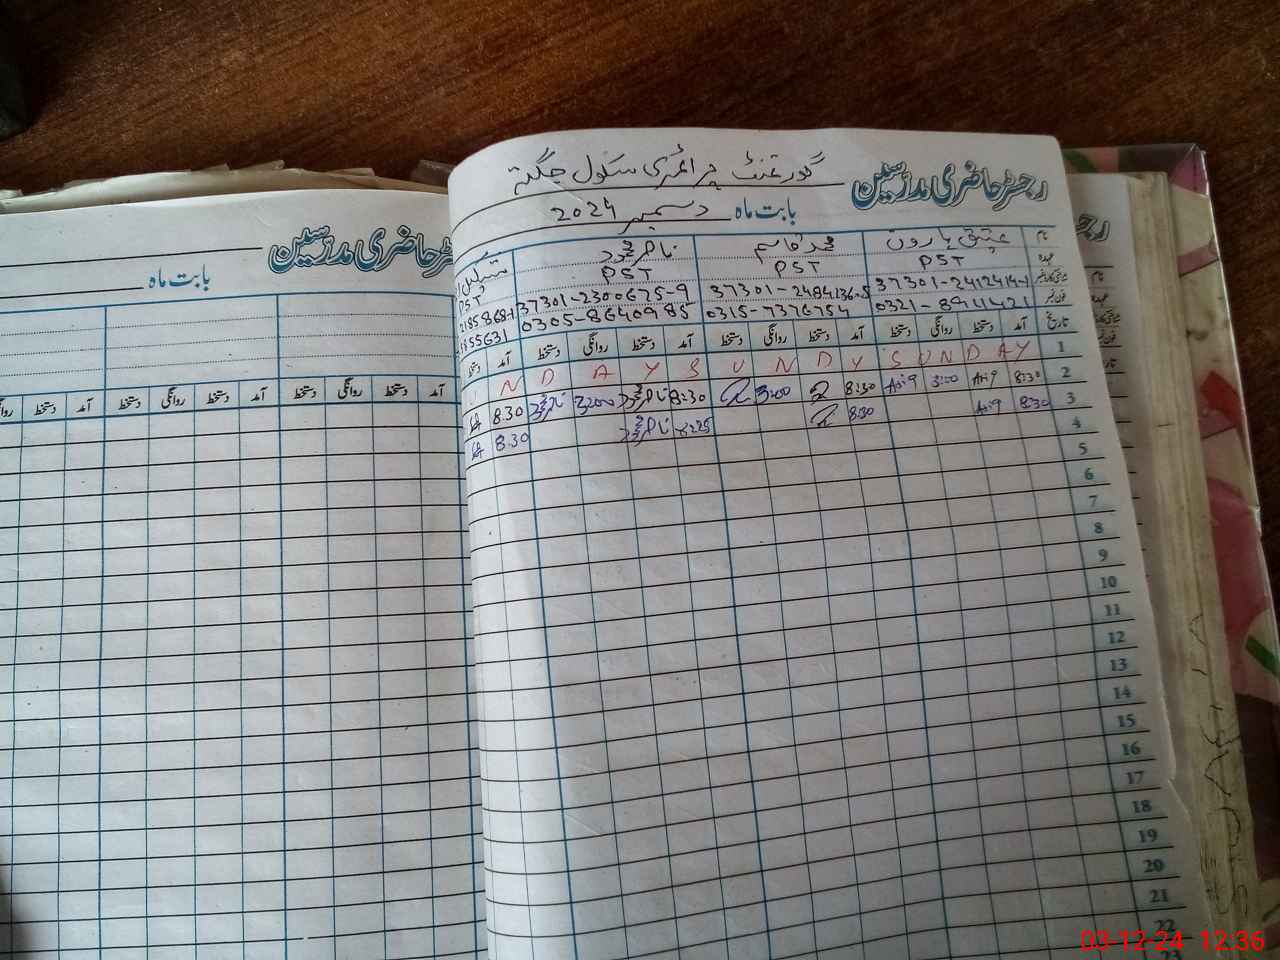 رجسٹر حاضری مدرسین گورنمنٹ پرائمری سکول جگتہ
بابت ماہ دسمبر 2024
نام عتیق ہارون محمد قاسم ناصر محمود
عہدہ PST PST PST PST
شناختی کارڈ نمبر 37301-2412414-1 37301-2484236-5 37301-2300675-9 2185868-1
فون نمبر 0321-8941421 0315-7376754 0305-8640985 1355631
تاریخ آمد دستخط روانگی دستخط آمد دستخط روانگی دستخط آمد دستخط روانگی دستخط آمد دستخط
1 SUNDAY SUNDAY SUNDAY
2 8:30 Asi9 3:00 Asi9 8:30 3:00 8:30 ناصر محمود 3:00 ناصر محمود 8:30
3 8:30 Asi9 8:30 8:25 ناصر محمود 8:30
4
5
6
7
8
9
10
11
12
13
14
15
16
17
18
19
20
21
22
23
رجسٹر حاضری مدرسین
بابت ماہ
آمد دستخط روانگی دستخط آمد دستخط روانگی دستخط آمد دستخط روانگی
03-12-24 12:36